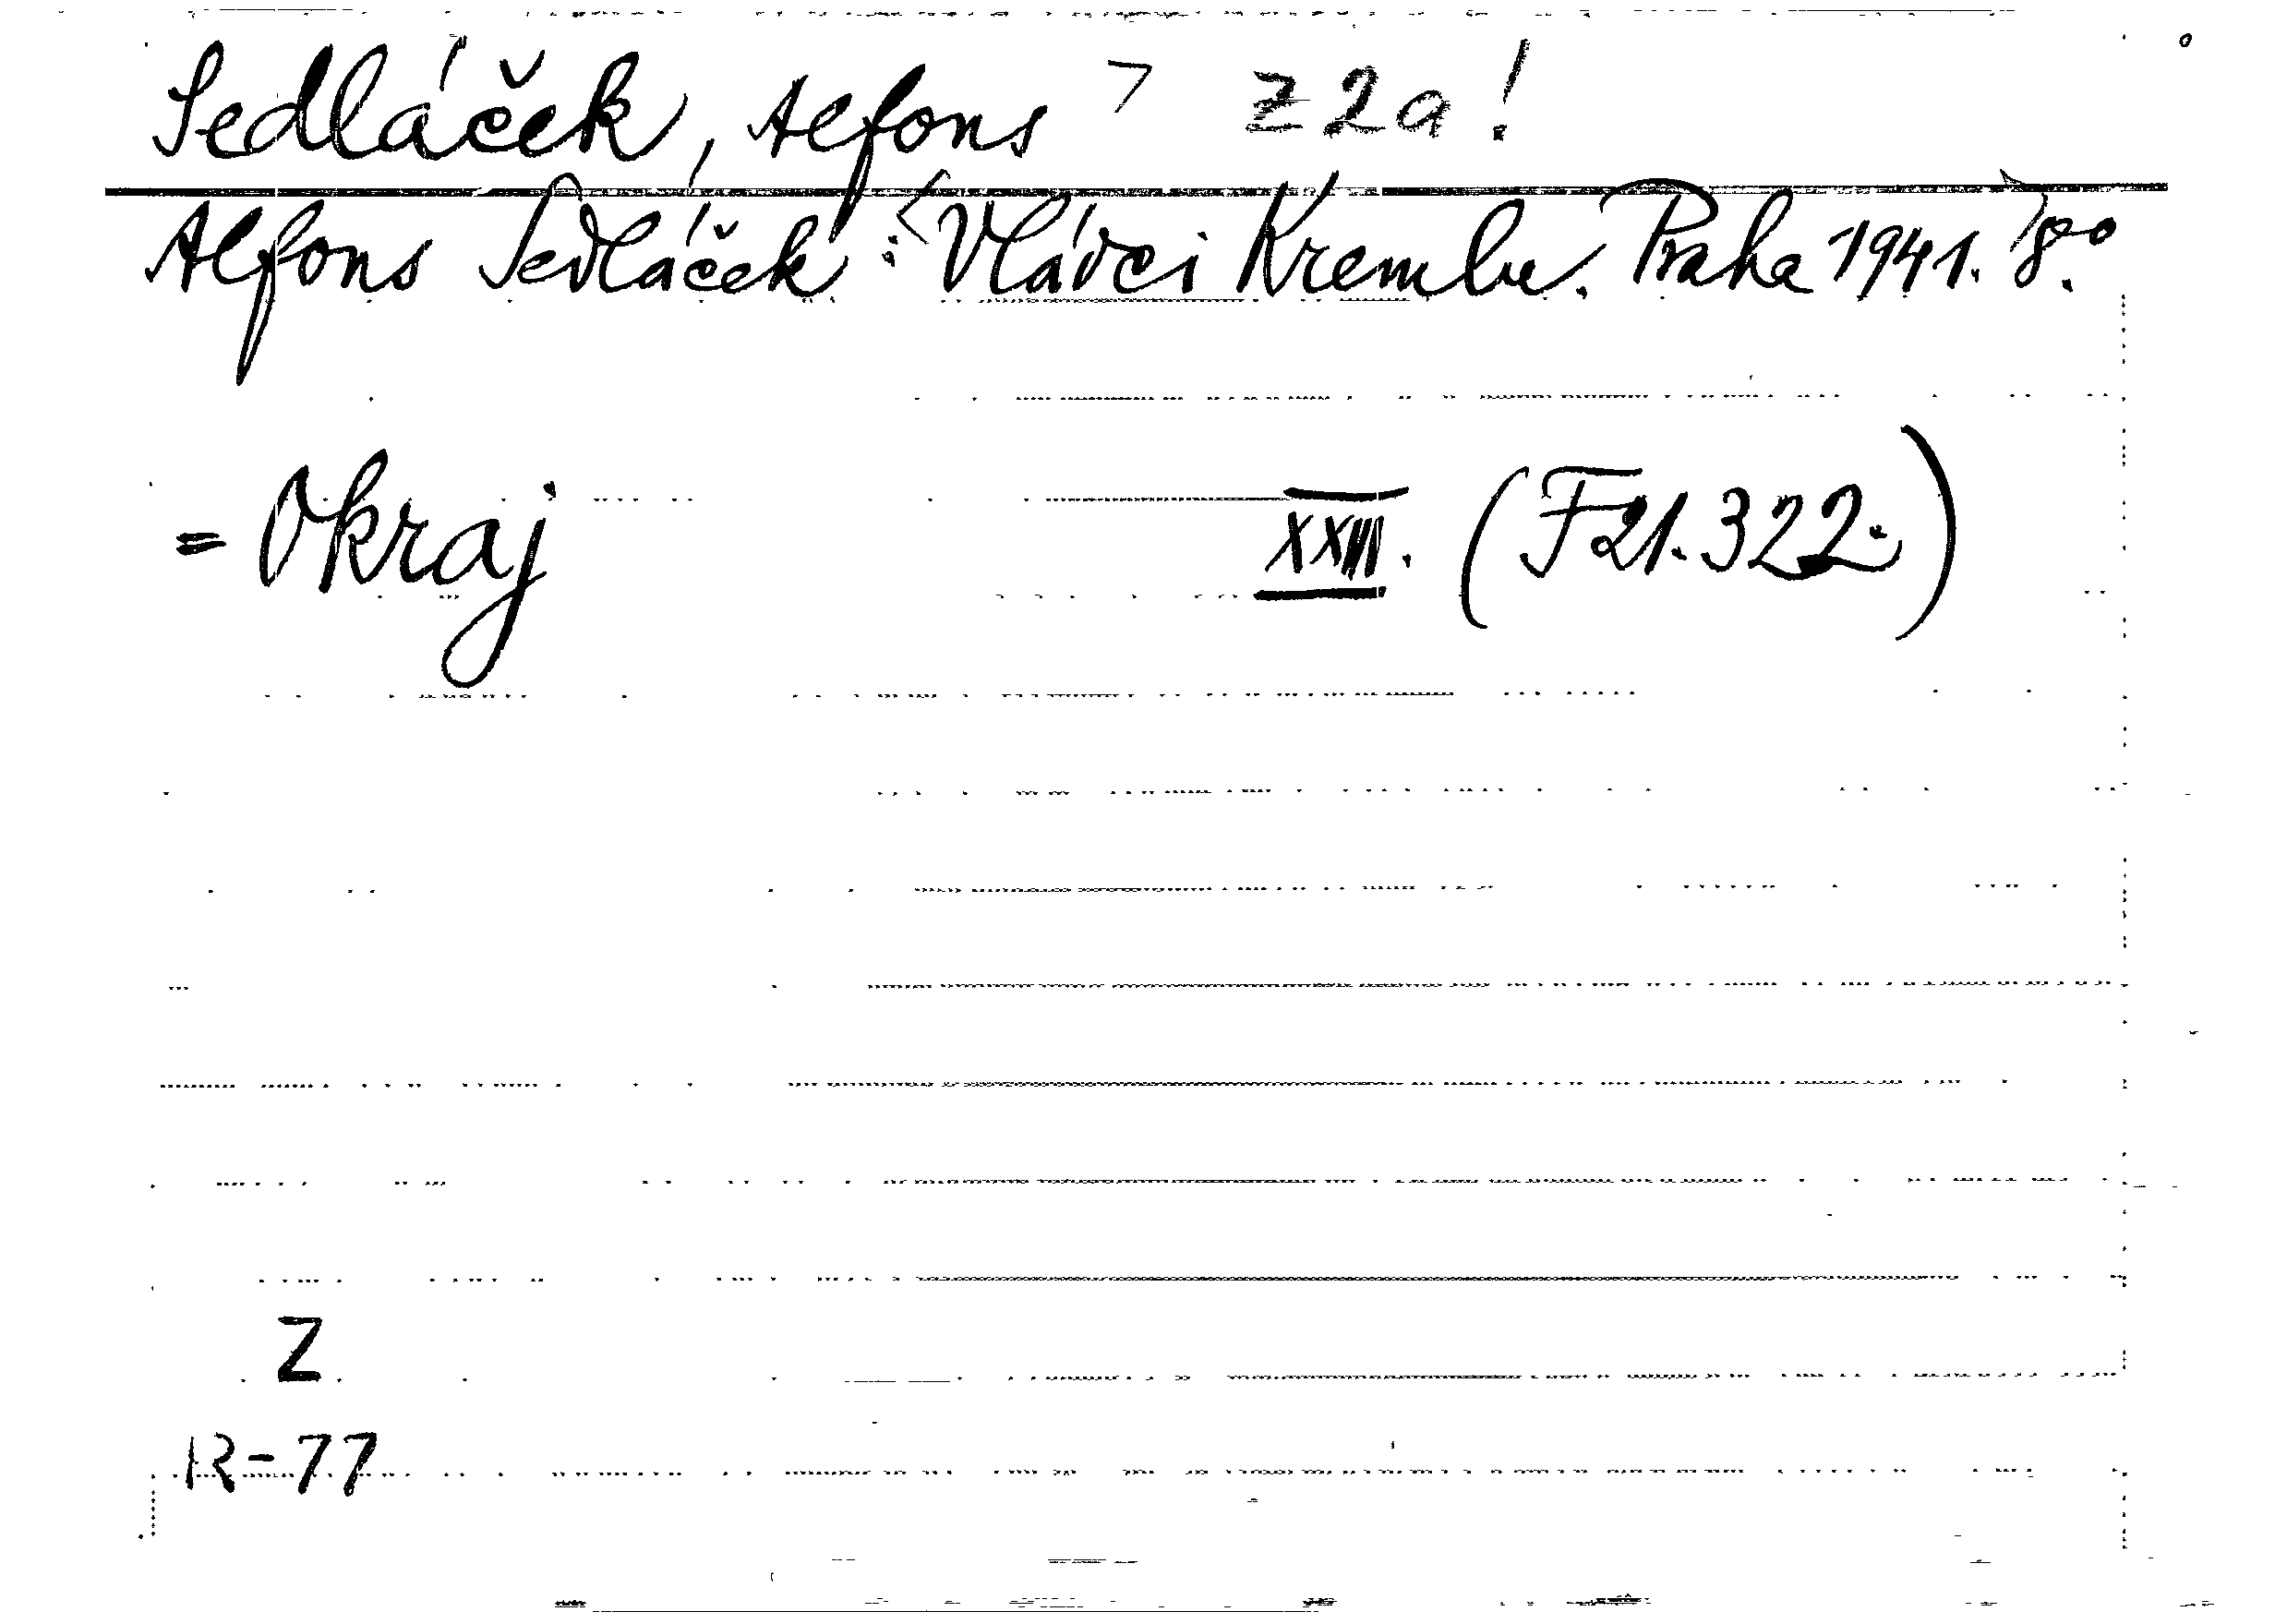 Sedláček, Alfons > Z2a!
Alfons Sedláček: <Vládci Kremlu. Praha 1941. 8°.
= Okraj XXIII. (F21.322.)
Z
R-77